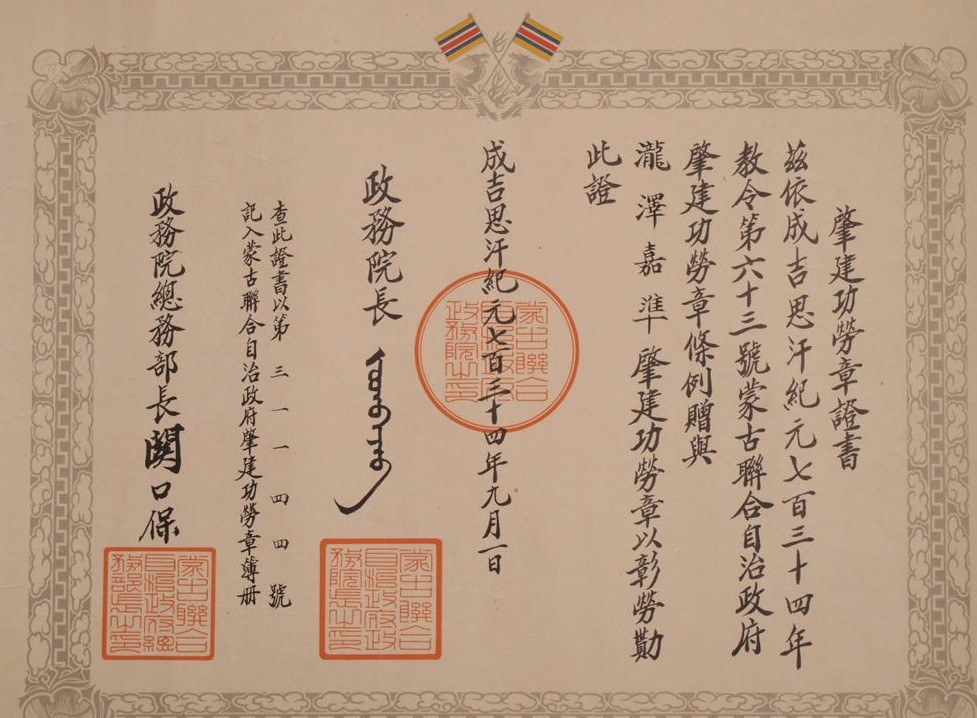 肇建功勞章證書
茲依成吉思汗紀元七百三十四年
教令第六十三號蒙古聯合自治政府
肇建功勞章條例贈與
瀧澤嘉準肇建功勞章以彰勞勩
此證
成吉思汗紀元七百三十四年九月一日
政務院長
查此證書以第三一一四四號
記入蒙古聯合自治政府肇建功勞章簿册
政務院總務部長關口保
蒙古聯合
自治政府
政務院之印
蒙古聯合
自治政府政
務院長之印
蒙古聯合
自治政府總
務部長之印